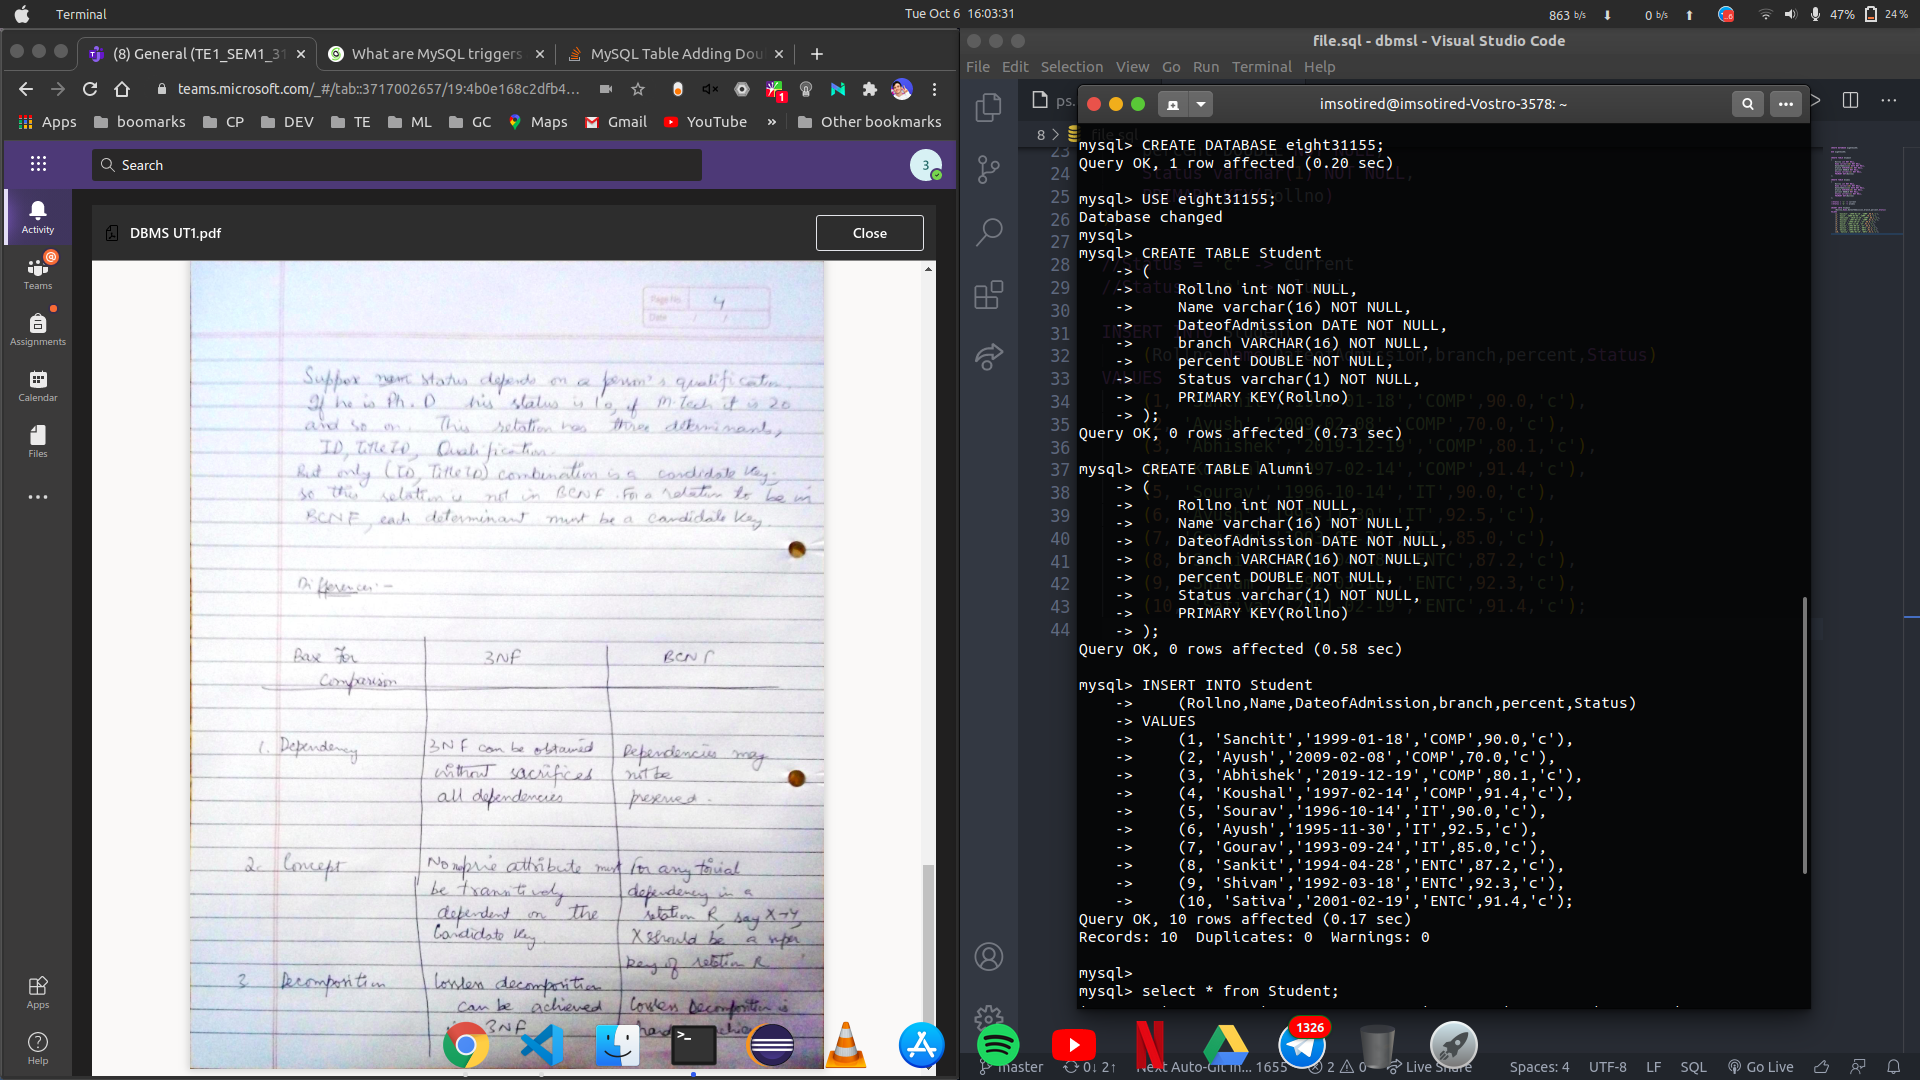 Terminal
Tue Oct 6 16:03:31
863 b/s
0 b/s
47%
24 %
(8) General (TE1_SEM1_31
What are MySQL triggers
MySQL Table Adding Dou
teams.microsoft.com/_#/tab::3717002657/19:4b0e168c2dfb4...
1
Apps
boomarks
CP
DEV
TE
ML
GC
Maps
Gmail
YouTube
»
Other bookmarks
Search
3
Activity
Teams
Assignments
Calendar
Files
Apps
Help
DBMS UT1.pdf
Close
Page No. 4
Date / /
Suppose status depends on a person's qualification.
If he is Ph.D his status is 10, if M-Tech it is 20
and so on. This relation has three determinants,
ID, TitleID, Qualification.
But only (ID, TitleID) combination is a candidate key.
so this relation is not in BCNF. For a relation to be in
BCNF, each determinant must be a candidate key.
Difference:-
Base For
Comparison
3NF
BCNF
1. Dependency
3NF can be obtained
without sacrifices
all dependencies
Dependencies may
not be
preserved.
2. Concept
attribute must
be transitively
dependent on the
Candidate key.
For any trivial
dependency in a
relation R, say X→Y,
X should be a super
key of relation R
3. Decomposition
lossless decomposition
can be achieved
3NF
Lossless Decomposition is
file.sql - dbmsl - Visual Studio Code
File Edit Selection View Go Run Terminal Help
ps.
8 > file.sql
imsotired@imsotired-Vostro-3578: ~
mysql> CREATE DATABASE eight31155;
Query OK, 1 row affected (0.20 sec)
mysql> USE eight31155;
Database changed
mysql>
mysql> CREATE TABLE Student
-> (
-> Rollno int NOT NULL,
-> Name varchar(16) NOT NULL,
-> DateofAdmission DATE NOT NULL,
-> branch VARCHAR(16) NOT NULL,
-> percent DOUBLE NOT NULL,
-> Status varchar(1) NOT NULL,
-> PRIMARY KEY(Rollno)
-> );
Query OK, 0 rows affected (0.73 sec)
mysql> CREATE TABLE Alumni
-> (
-> Rollno int NOT NULL,
-> Name varchar(16) NOT NULL,
-> DateofAdmission DATE NOT NULL,
-> branch VARCHAR(16) NOT NULL,
-> percent DOUBLE NOT NULL,
-> Status varchar(1) NOT NULL,
-> PRIMARY KEY(Rollno)
-> );
Query OK, 0 rows affected (0.58 sec)
mysql> INSERT INTO Student
-> (Rollno,Name,DateofAdmission,branch,percent,Status)
-> VALUES
-> (1, 'Sanchit','1999-01-18','COMP',90.0,'c'),
-> (2, 'Ayush','2009-02-08','COMP',70.0,'c'),
-> (3, 'Abhishek','2019-12-19','COMP',80.1,'c'),
-> (4, 'Koushal','1997-02-14','COMP',91.4,'c'),
-> (5, 'Sourav','1996-10-14','IT',90.0,'c'),
-> (6, 'Ayush','1995-11-30','IT',92.5,'c'),
-> (7, 'Gourav','1993-09-24','IT',85.0,'c'),
-> (8, 'Sankit','1994-04-28','ENTC',87.2,'c'),
-> (9, 'Shivam','1992-03-18','ENTC',92.3,'c'),
-> (10, 'Sativa','2001-02-19','ENTC',91.4,'c');
Query OK, 10 rows affected (0.17 sec)
Records: 10 Duplicates: 0 Warnings: 0
mysql>
mysql> select * from Student;
23
24
25
26
27
28
29
30
31
32
33
34
35
36
37
38
39
40
41
42
43
44
1326
master
0↓ 2↑
Next Auto-Git in... 1655
2
0
Live Share
Spaces: 4
UTF-8
LF
SQL
Go Live